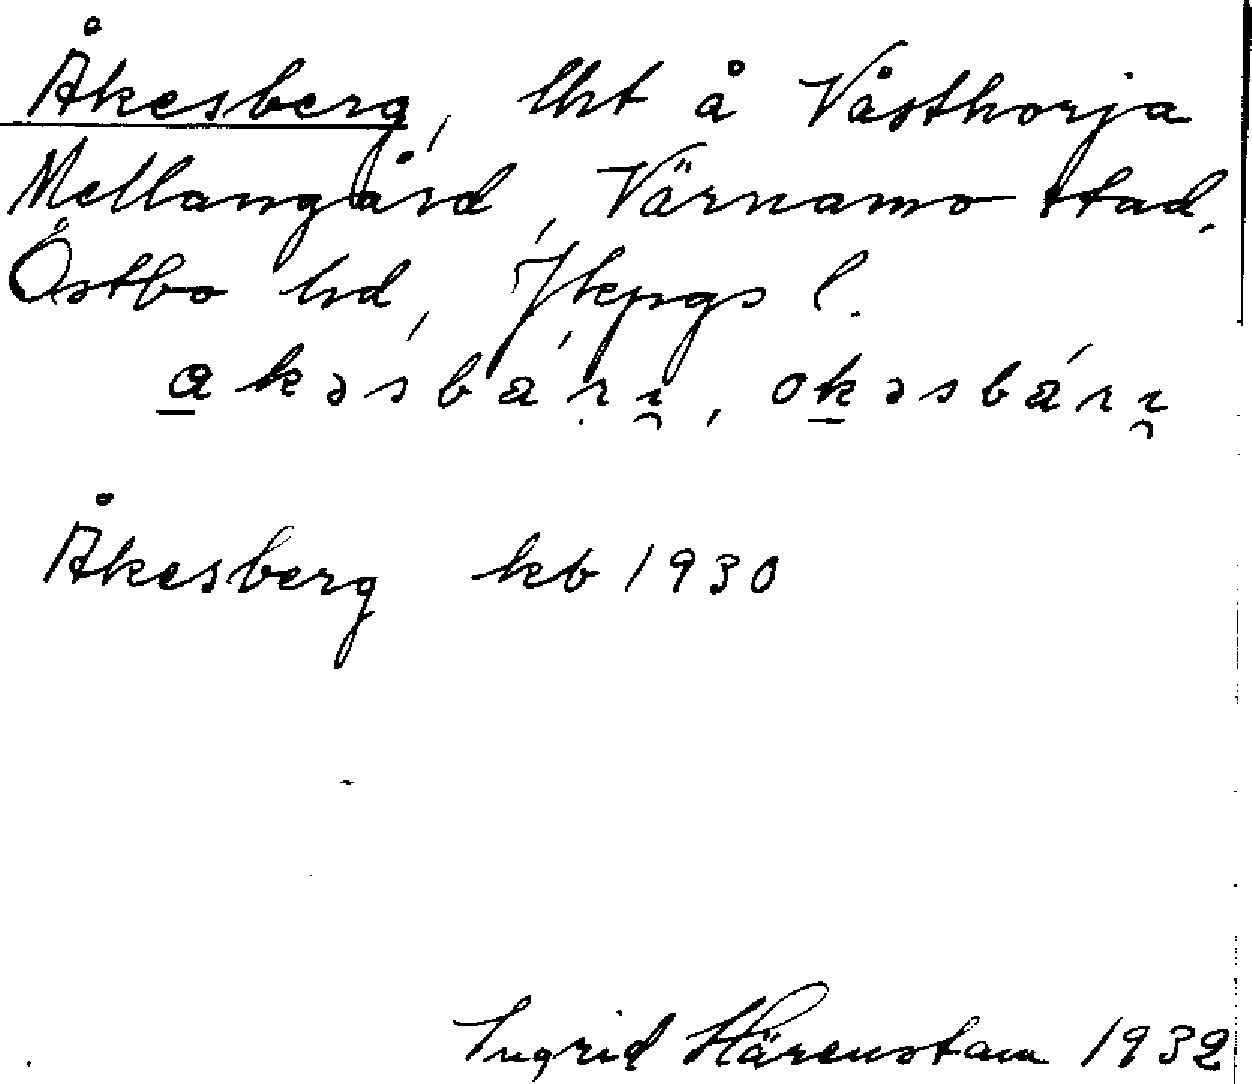 Åkesberg, lht å Västhorja
Mellangård, Värnamo stad,
Östbo hd, Jkpgs l.
akəsbárɪ, okəsbárɪ
Åkesberg kb 1930
Ingrid Härenstam 1932